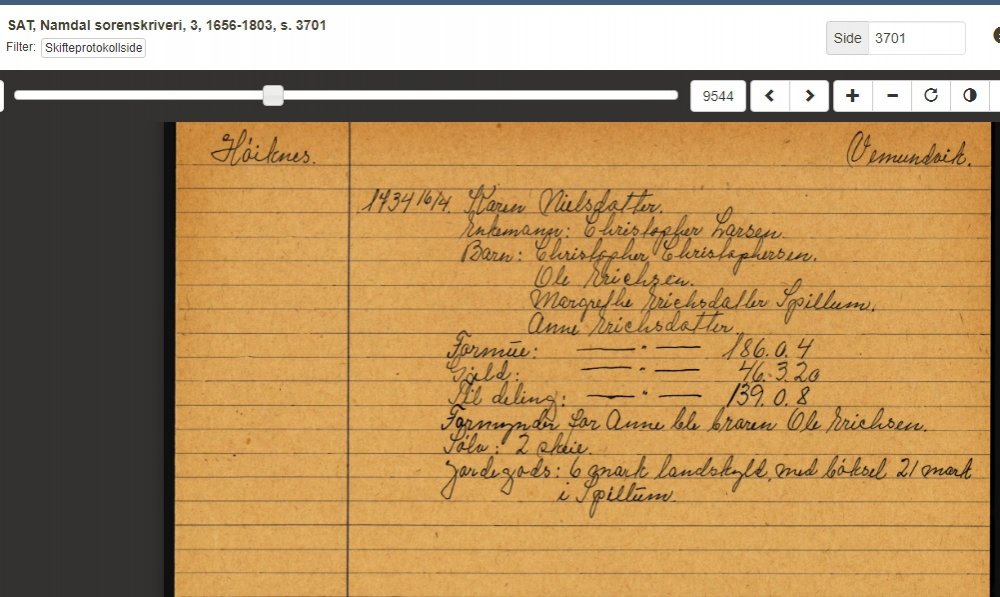 SAT, Namdal sorenskriveri, 3, 1656-1803, s. 3701
Filter: Skifteprotokollside
Side 3701
9544
Høiknes. Vemundvik.
1734 16/4. Karen Nielsdatter.
Enkemann: Christopher Larsen.
Barn: Christopher Christophersen.
Ole Erichsen.
Margrethe Erichsdatter Spillum.
Anne Erichsdatter.
Formue: — " — 186. 0. 4
Gjeld: — " — 46. 3. 20
Til deling: — " — 139. 0. 8
Formynder for Anne ble broren Ole Erichsen.
Sølv: 2 skeie.
Jordegods: 6 mark landskyld, med bøksel 21 mark
i Spillum.